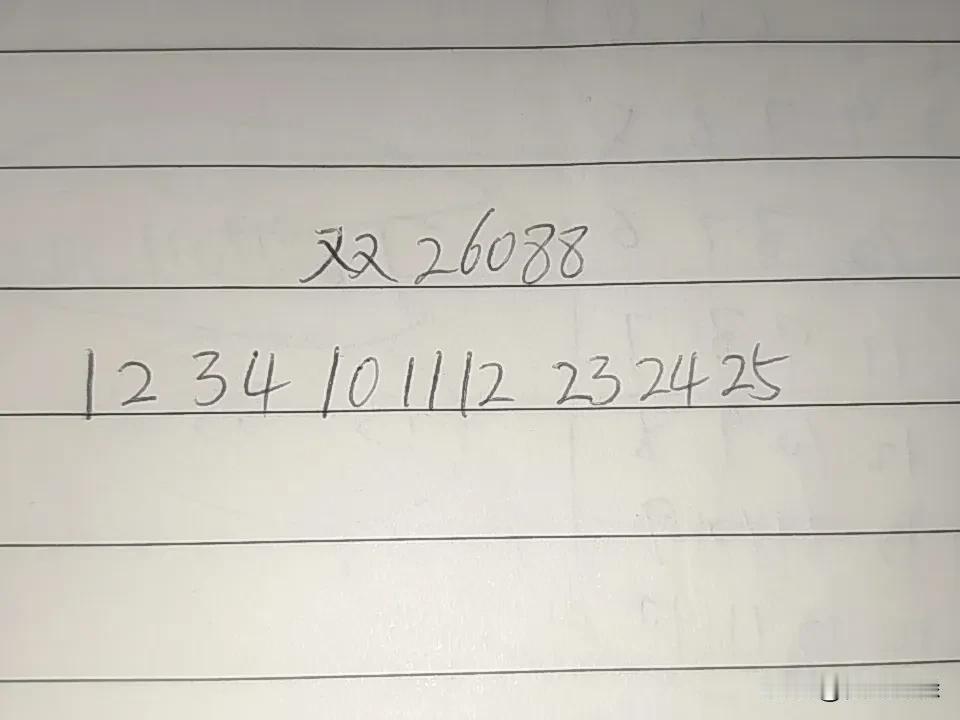 双 26088
1 2 3 4 10 11 12 23 24 25